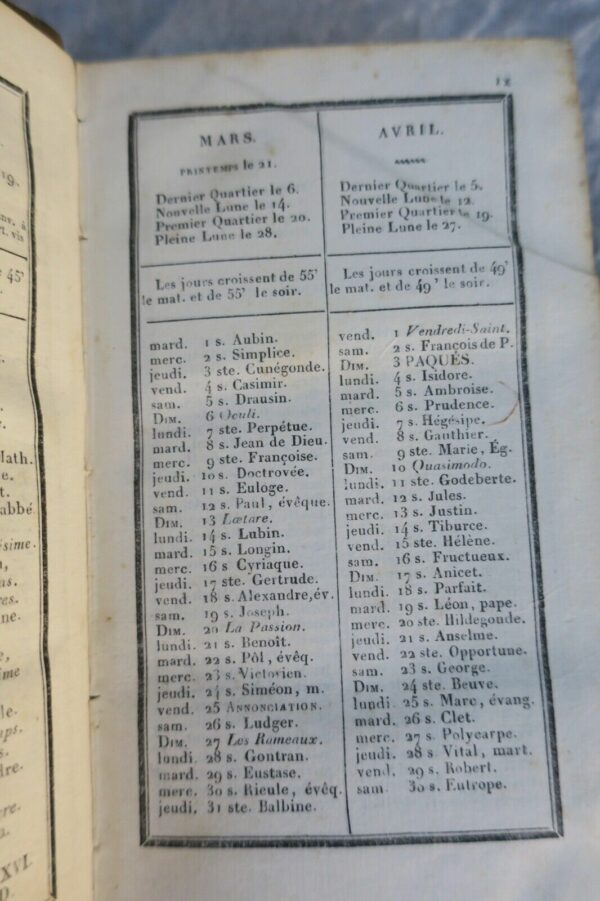 19.
nv. à
t. vis
e 45'
Math.
e.
t.
abbé
sime.
n,
ns.
res.
ne.
e,
sime
le.
ups.
s.
dre-
ere.
XVI.
D.
ix
MARS.
PRINTEMPS le 21.
Dernier Quartier le 6.
Nouvelle Lune le 14.
Premier Quartier le 20.
Pleine Lune le 28.
Les jours croissent de 55'
le mat. et de 55' le soir.
mard. 1 s. Aubin.
merc. 2 s. Simplice.
jeudi. 3 ste. Cunégonde.
vend. 4 s. Casimir.
sam. 5 s. Drausin.
DIM. 6 Oculi.
lundi. 7 ste. Perpétue.
mard. 8 s. Jean de Dieu.
merc. 9 ste. Françoise.
jeudi. 10 s. Doctrovée.
vend. 11 s. Euloge.
sam. 12 s. Paul, évêque.
DIM. 13 Lætare.
lundi. 14 s. Lubin.
mard. 15 s. Longin.
merc. 16 s Cyriaque.
jeudi. 17 ste. Gertrude.
vend. 18 s. Alexandre, év.
sam. 19 s. Joseph.
DIM. 20 La Passion.
lundi. 21 s. Benoît.
mard. 22 s. Pôl, évêq.
merc. 23 s. Victorien.
jeudi. 24 s. Siméon, m.
vend. 25 ANNONCIATION.
sam. 26 s. Ludger.
DIM. 27 Les Rameaux.
lundi. 28 s. Gontran.
mard. 29 s. Eustase.
merc. 30 s. Rieule, évêq.
jeudi. 31 ste. Balbine.
AVRIL.
Dernier Quartier le 5.
Nouvelle Lune le 12.
Premier Quartier le 19.
Pleine Lune le 27.
Les jours croissent de 49'
le mat. et de 49' le soir.
vend. 1 Vendredi-Saint.
sam. 2 s. François de P.
DIM. 3 PAQUES.
lundi. 4 s. Isidore.
mard. 5 s. Ambroise.
merc. 6 s. Prudence.
jeudi. 7 s. Hégésipe.
vend. 8 s. Gauthier.
sam. 9 ste. Marie, Ég.
DIM. 10 Quasimodo.
lundi. 11 ste. Godeberte.
mard. 12 s. Jules.
merc. 13 s. Justin.
jeudi. 14 s. Tiburce.
vend. 15 ste. Hélène.
sam. 16 s. Fructueux.
DIM. 17 s. Anicet.
lundi. 18 s. Parfait.
mard. 19 s. Léon, pape.
merc. 20 ste. Hildegonde.
jeudi. 21 s. Anselme.
vend. 22 ste. Opportune.
sam. 23 s. George.
DIM. 24 ste. Beuve.
lundi. 25 s. Marc, évang.
mard. 26 s. Clet.
merc. 27 s. Polycarpe.
jeudi. 28 s Vital, mart.
vend. 29 s. Robert.
sam. 30 s. Eutrope.